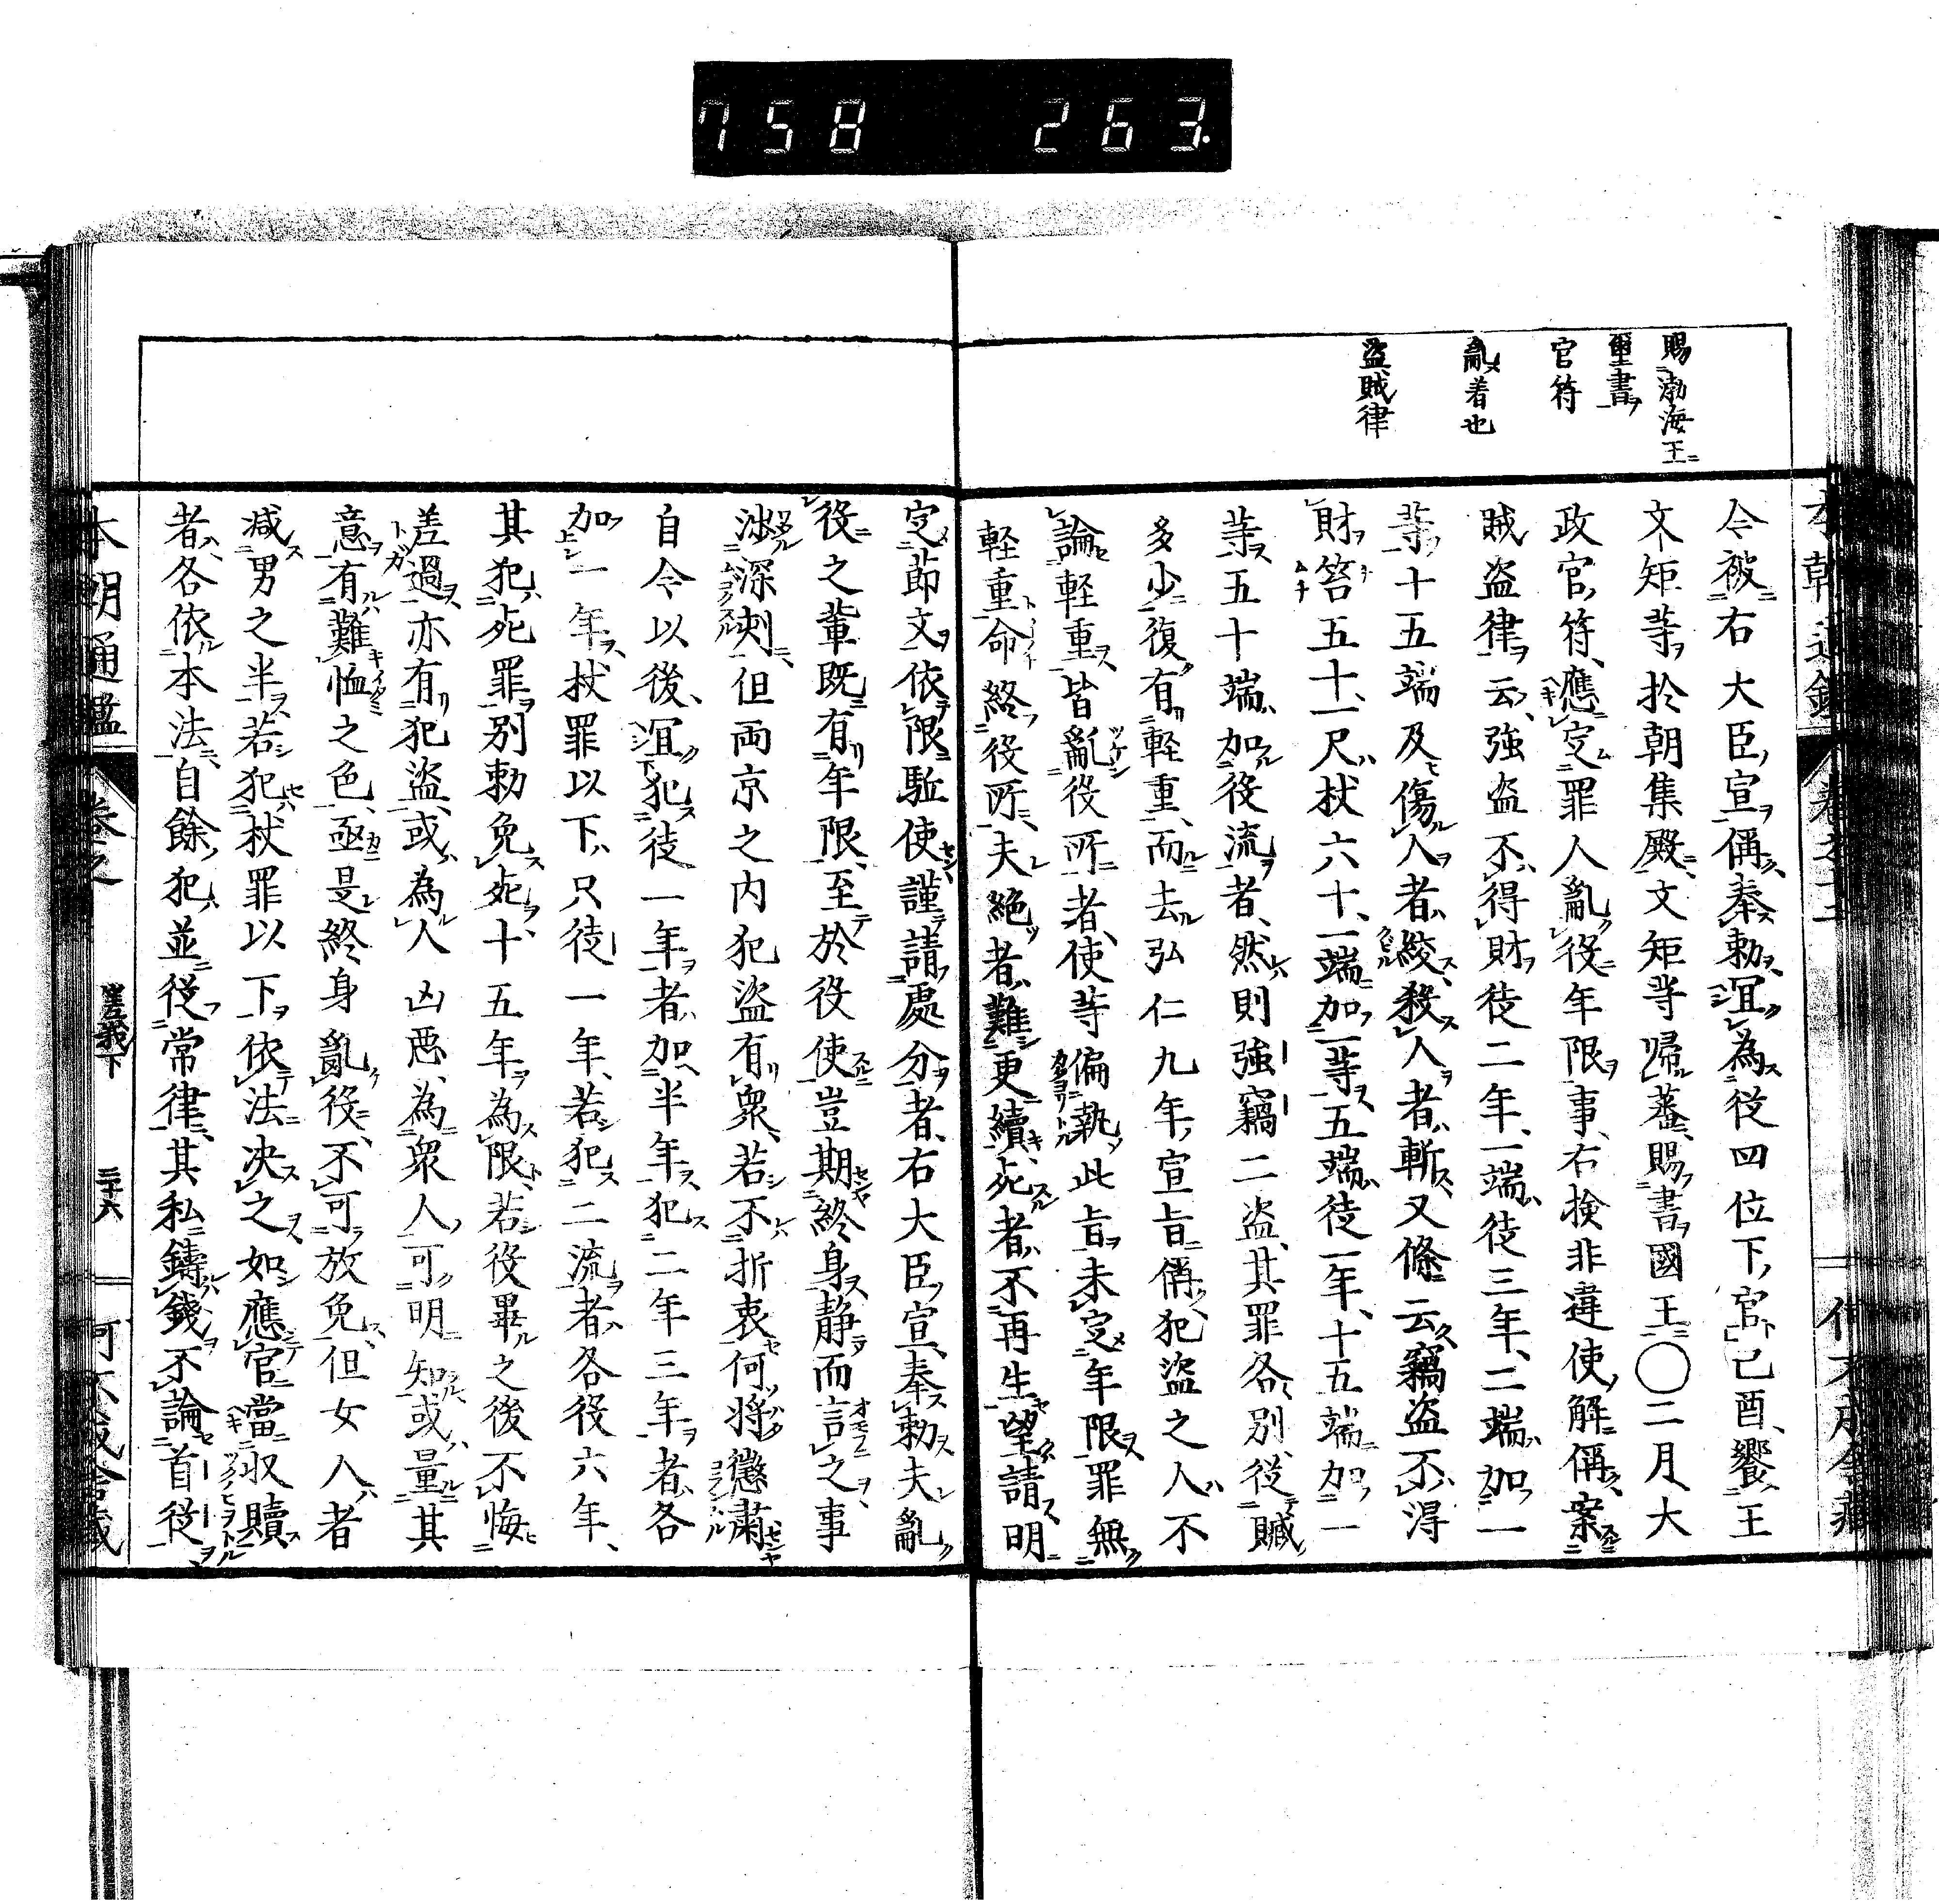 758 263.
賜渤海王
璽書
官符
亂着也
盜賊律
令被右大臣宣偁奉勅冝為従四位下官已酉饗王
文矩等於朝集殿文矩等帰蕃賜書國王〇二月大
政官符應定罪人亂役年限事右撿非違使解偁案
賊盗律云強盗不得財徒二年一端徒三年二端加一
等十五端及傷人者絞殺人者斬又條云竊盗不得
財笞五十一尺杖六十一端加一等五端徒一年十五端加一
等五十端加役流者然則強竊二盗其罪各別従贓
多少復有軽重而去弘仁九年宣旨偁犯盗之人不
論軽重皆亂役所者使等偏執此旨未定年限罪無
軽重命終役所夫絶者難更續死者不再生望請明
定節文依限駈使謹請處分者右大臣宣奉勅夫亂
役之輩既有年限至於役使豈期終身静而言之事
渉深刻但両京之内犯盗有衆若不折衷何将懲肅
自今以後冝犯徒一年者加半年犯二年三年者各
加一年杖罪以下只徒一年若犯二流者各役六年
其犯死罪別勅免死十五年為限若役畢之後不悔
差過亦有犯盗或為人凶悪為衆人可明知或量其
意有難恤之色亟是終身亂役不可放免但女人者
减男之半若犯杖罪以下依法决之如應官當収贖
者各依本法自餘犯並従常律其私鑄錢不論首従
本朝通鑑 卷之 三十六